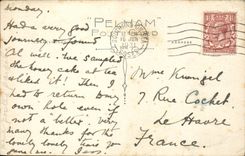 Monday.
Had a very good
journey & found
all well. We sampled
the honey cake at tea
& liked it! Then
had to return to our
own hole even if
not a "better". Very
many thanks for the
lovely lovely time you
gave me.
PELHAM
FOLKESTONE
Mme Krumpel
7 Rue Cochet
Le Havre
France.